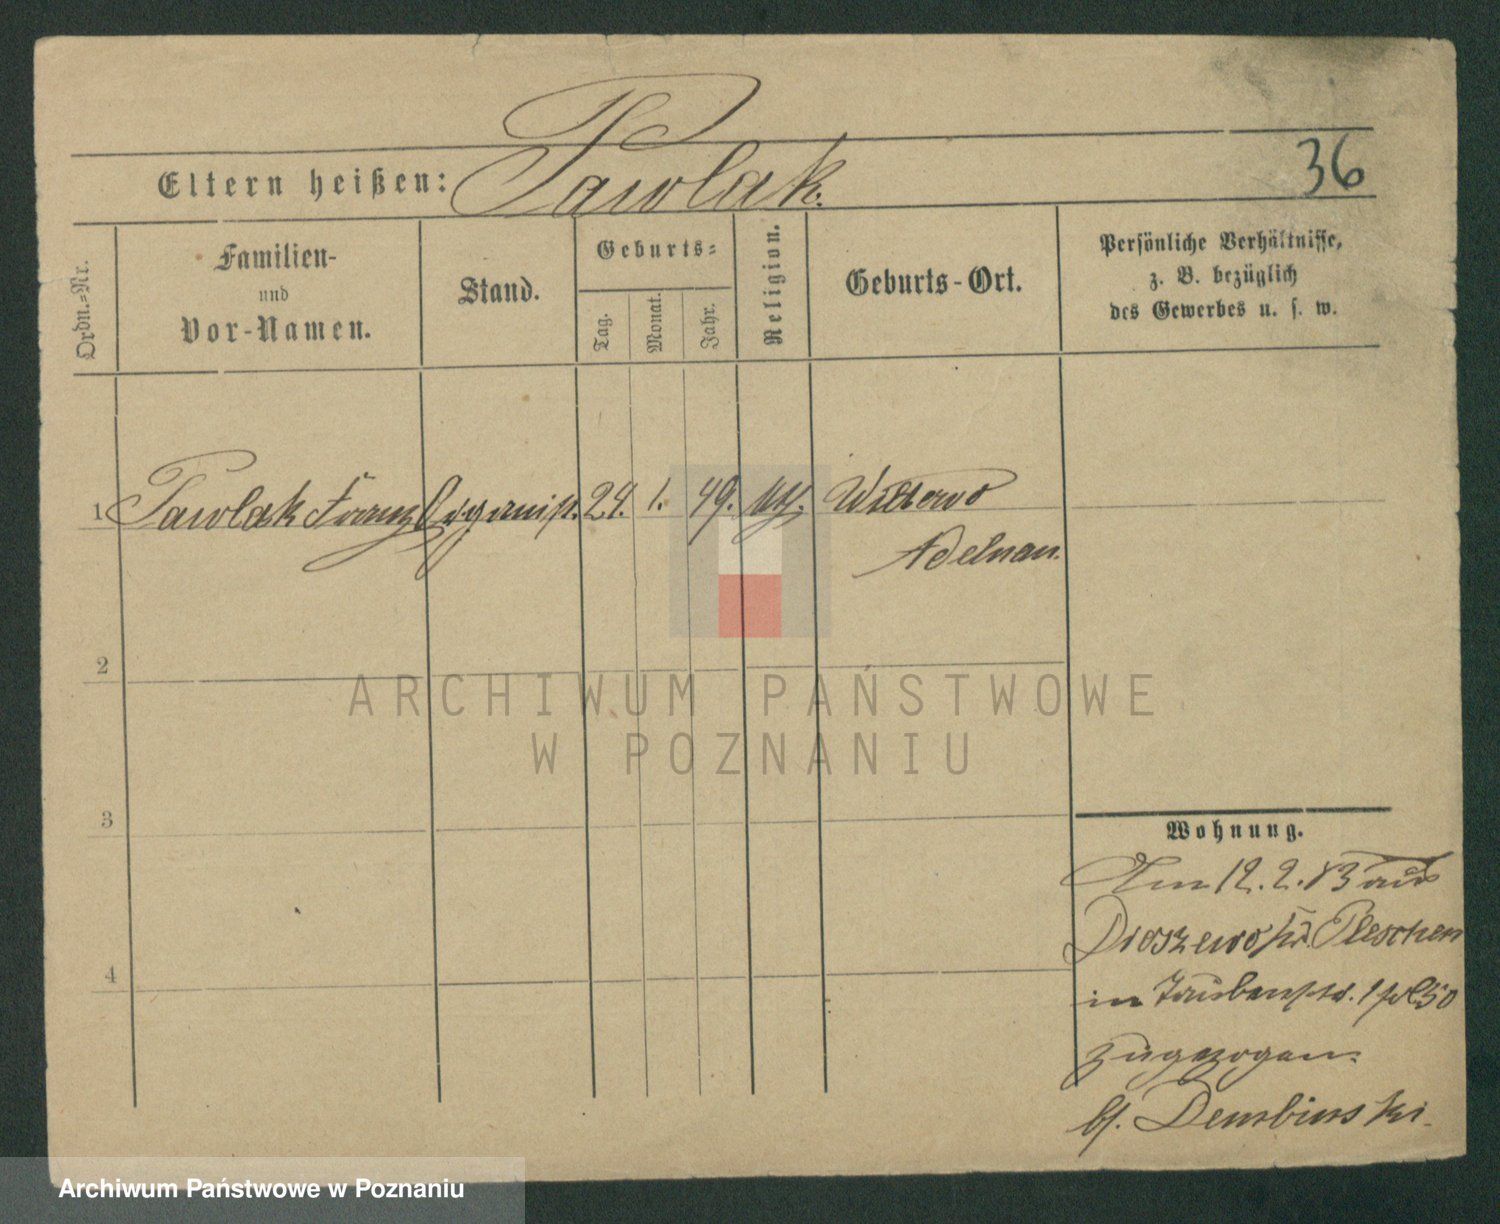 36
Eltern heißen: Pawlak.
Ordn.-Nr.
Familien-
und
Vor-Namen.
Stand.
Geburts-
Tag.
Monat.
Jahr.
Religion.
Geburts-Ort.
Persönliche Verhältnisse,
z. B. bezüglich
des Gewerbes u. s. w.
1 Pawlak Franz Organist. 24. 1. 49.
Adelnau.
2
3
4
ARCHIWUM PAŃSTWOWE
W POZNANIU
Wohnung.
Am 12.2.83 aus
Droszewo Kr. Pleschen
in Taubenstr. 1
zugezogen.
bf. Dembinski.
Archiwum Państwowe w Poznaniu